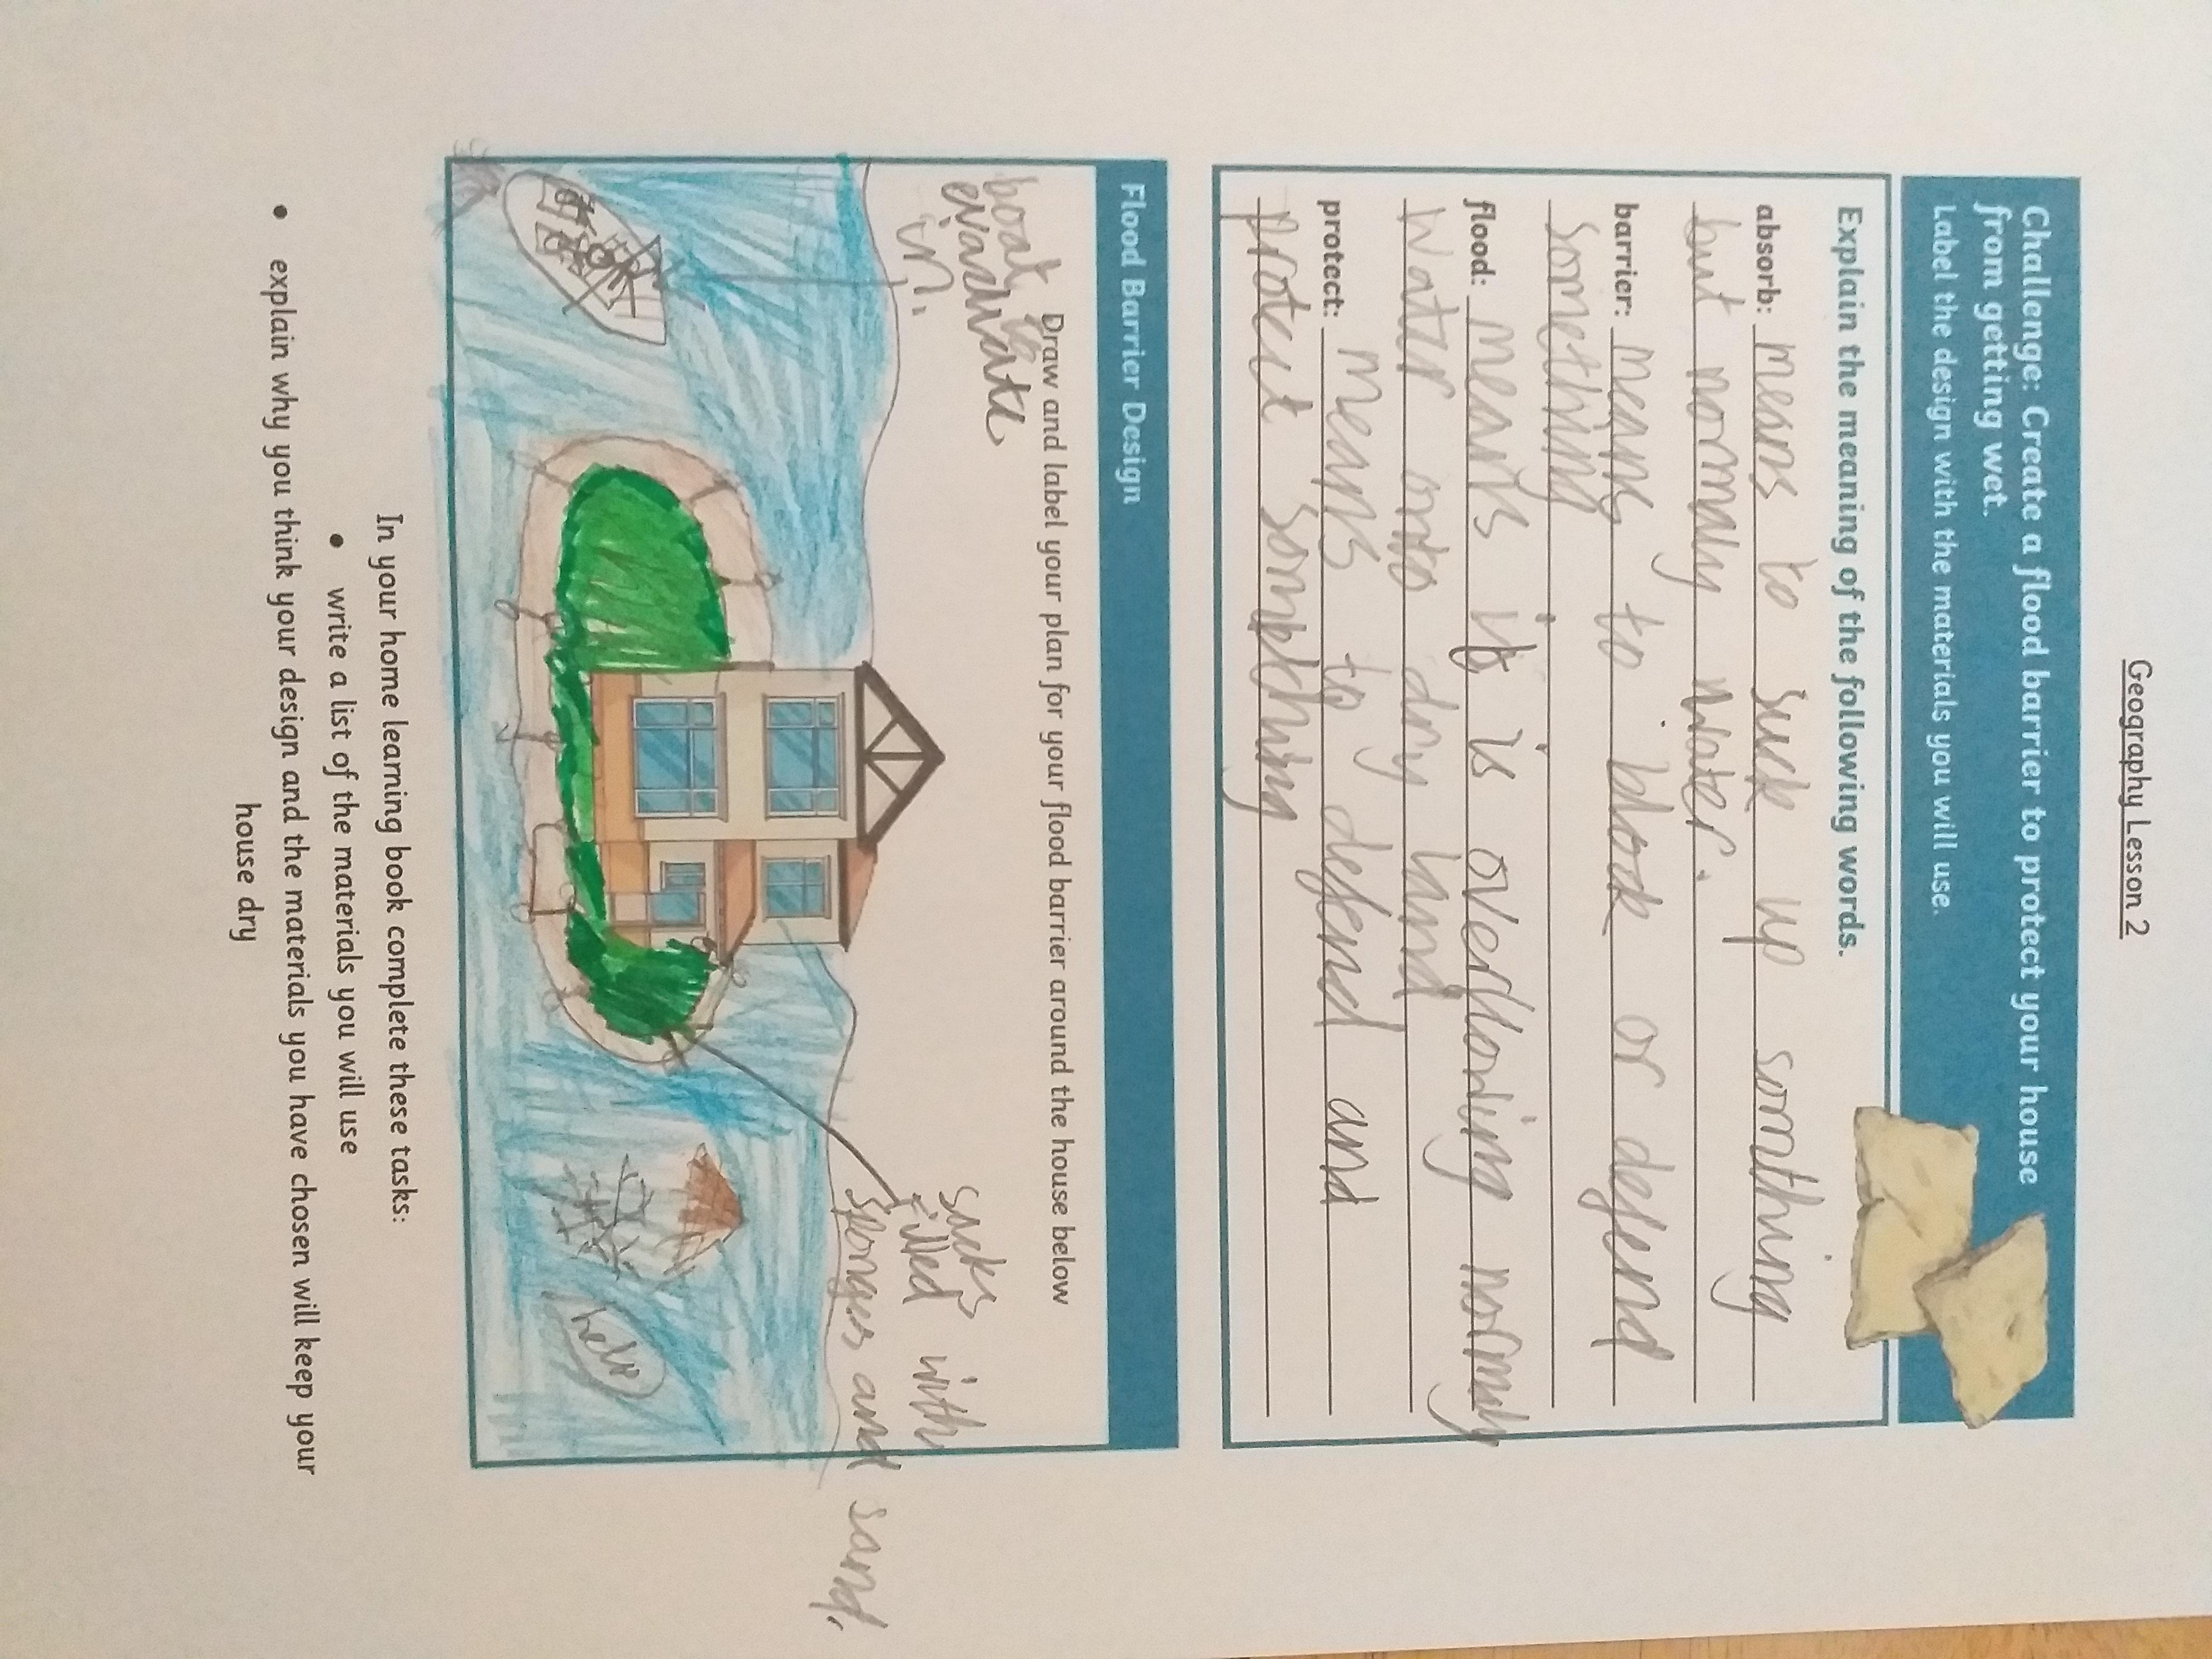 Geography Lesson 2
Challenge: Create a flood barrier to protect your house
from getting wet.
Label the design with the materials you will use.
Explain the meaning of the following words.
absorb: means to suck up somthing
but normaly water.
barrier: means to block or defend
something
flood: means it is overflowing normaly
water onto dry land
protect: means to defend and
protect something
Flood Barrier Design
Draw and label your plan for your flood barrier around the house below
boat to
evacuate
in.
sacks
filled with
sponges and sand.
help
In your home learning book complete these tasks:
• write a list of the materials you will use
• explain why you think your design and the materials you have chosen will keep your
house dry